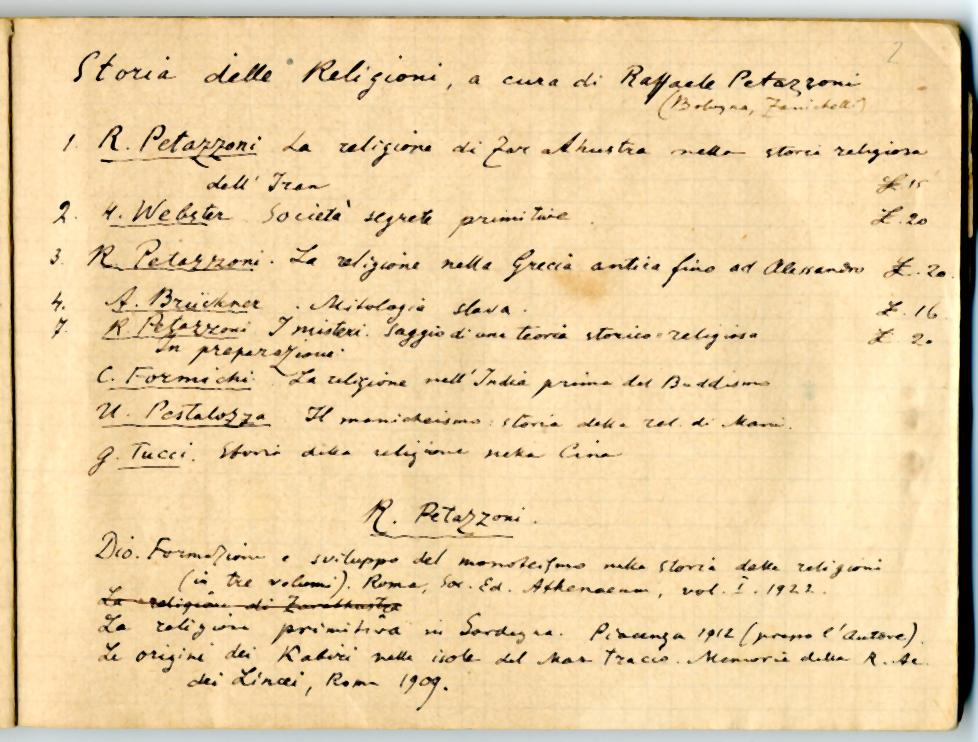 2
Storia delle Religioni, a cura di Raffaele Petazzoni
(Bologna, Zanichelli)
1. R. Petazzoni La religione di Zarathustra nella storia religiosa
dell' Iran £. 15
2. H. Webster Società segrete primitive. £. 20
3. R. Petazzoni. La religione nella Grecia antica fino ad Alessandro £. 20.
4. A. Brückner. Mitologia slava. £. 16
7. R. Petazzoni I misteri. Saggio di una teoria storico-religiosa £. 20
In preparazione:
C. Formichi. La religione nell'India prima del Buddismo
U. Pestalozza. Il manicheismo: storia della rel. di Mani.
G. Tucci. Storia della religione nella Cina
R. Petazzoni.
Dio. Formazione e sviluppo del monoteismo nella storia delle religioni
(in tre volumi). Roma, Soc. Ed. Athenaeum, vol. I. 1922.
La religione di Zarathustra
La religione primitiva in Sardegna. Piacenza 1912 (presso l'autore).
Le origini dei Kabiri nelle isole del Mar Tracio. Memorie della R. Ac.
dei Lincei, Roma 1909.